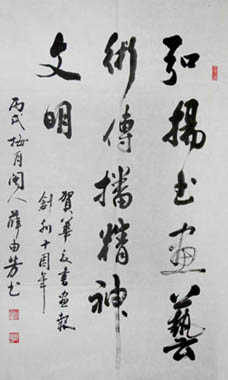 弘揚书画藝
術傳播精神
文明
賀華夏書画報
創刊十周年
丙戌梅月闽人薛由芳书